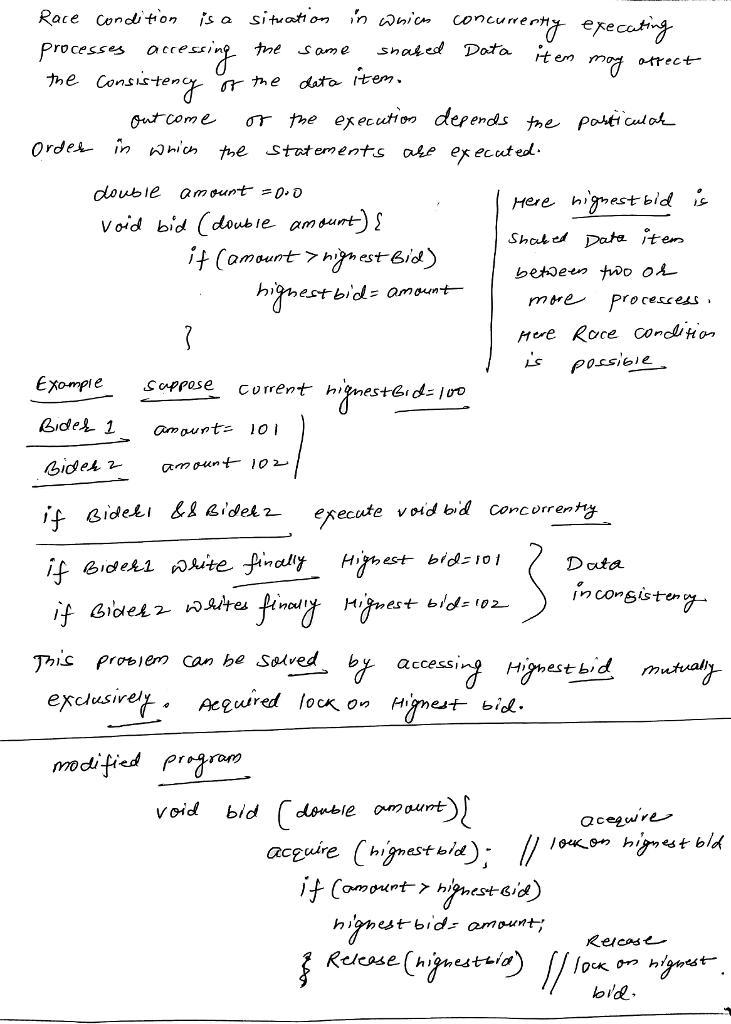 Race Condition is a situation in which concurrently executing
processes accessing the same shared Data item may affect
the Consistency of the data item.
outcome of the execution depends the particular
Order in which the statements are executed.
double amount = 0.0
void bid (double amount) {
if (amount > highest Bid)
highest bid = amount
}
Here highest bid is
Shared Data item
between two or
more processess.
Here Race condition
is possible
Example suppose current highest Bid = 100
Bider 1 amount = 101
Bider 2 amount 102
if Bider1 && Bider2 execute void bid concurrently
if Bider1 write finally Highest bid = 101
if Bider2 writes finally Highest bid = 102
Data
inconsistency
This problem can be solved by accessing Highest bid mutually
exclusively. Acquired lock on Highest bid.
modified program
void bid (double amount) {
acquire (highest bid); // acequire
lock on highest bid
if (amount > highest Bid)
highest bid = amount;
} Release (highest bid) // Release
lock on highest
bid.